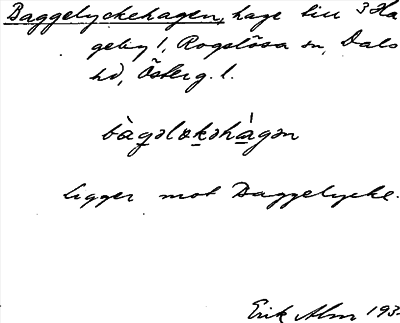 Daggelyckehagen, hage till 3 Ha
geby 1, Rogslösa sn, Dals
hd, Österg. l.
bàgəlʊkəhàgən
ligger mot Daggelycke.
Erik Alm 193